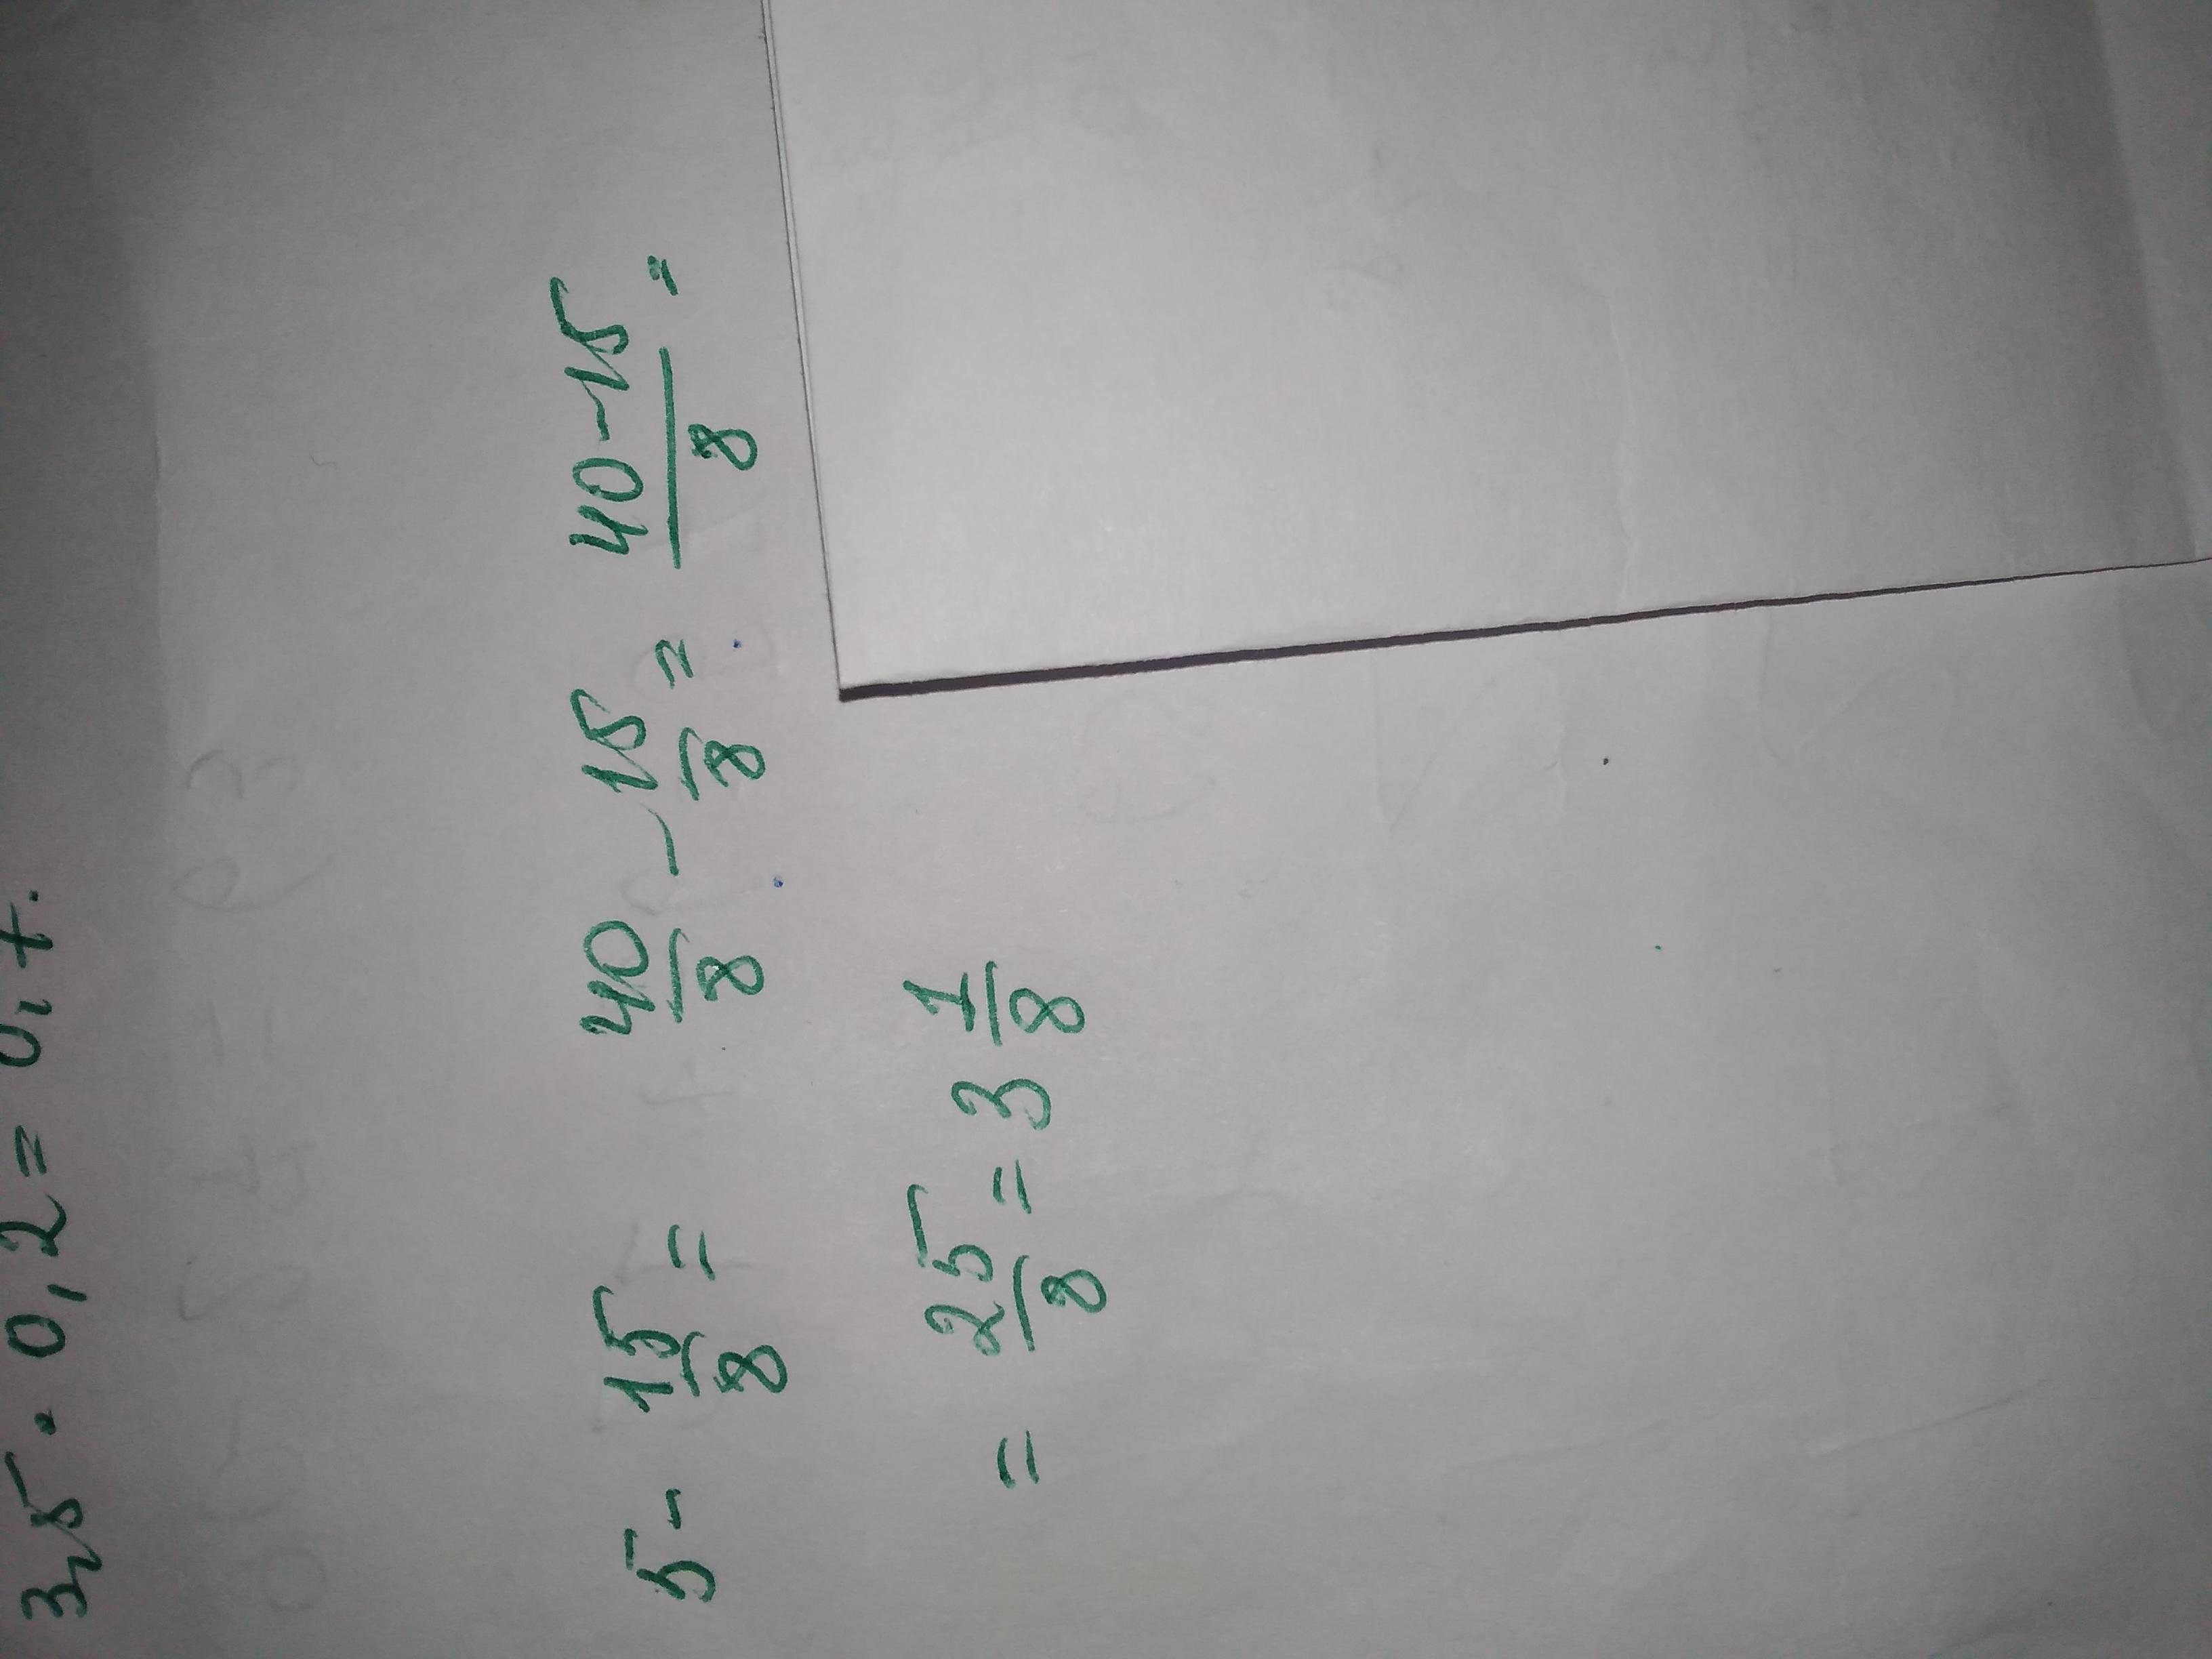 3,5 · 0,2 = 0,7.
5 - 15/8 = 40/8 - 15/8 = 40-15/8 =
= 25/8 = 3 1/8